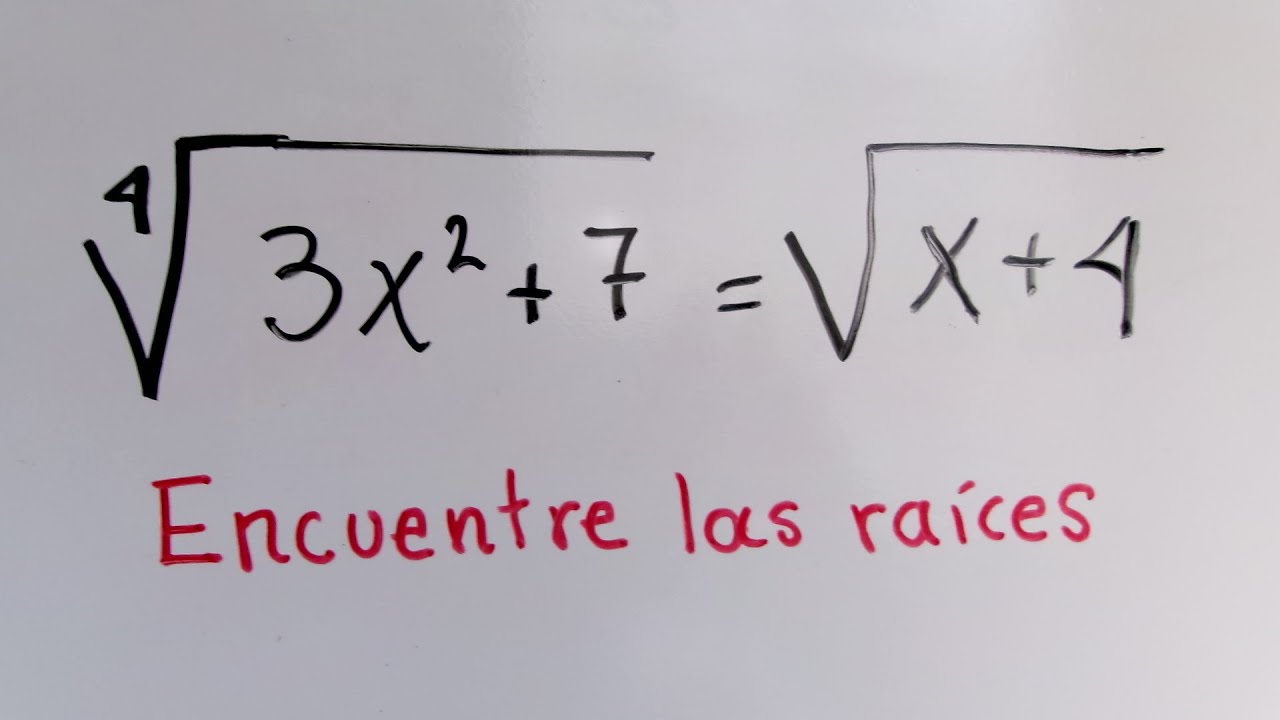 ∜(3x²+7) = √(x+4)
Encuentre las raíces